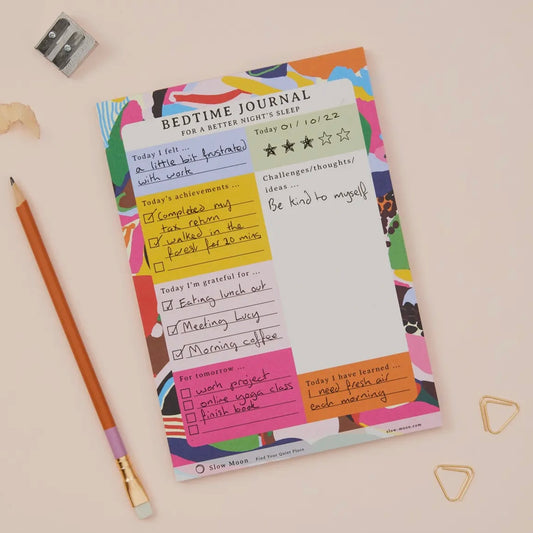 BEDTIME JOURNAL
FOR A BETTER NIGHT'S SLEEP
Today I felt ...
a little bit frustrated
with work
Today 01/10/22
Today's achievements ...
Completed my
tax return
walked in the
forest for 20 mins
Challenges/thoughts/
ideas ...
Be kind to myself
Today I'm grateful for ...
Eating lunch out
Meeting Lucy
Morning coffee
For tomorrow ...
work project
online yoga class
finish book
Today I have learned ...
I need fresh air
each morning
Slow Moon Find Your Quiet Place
slow-moon.com